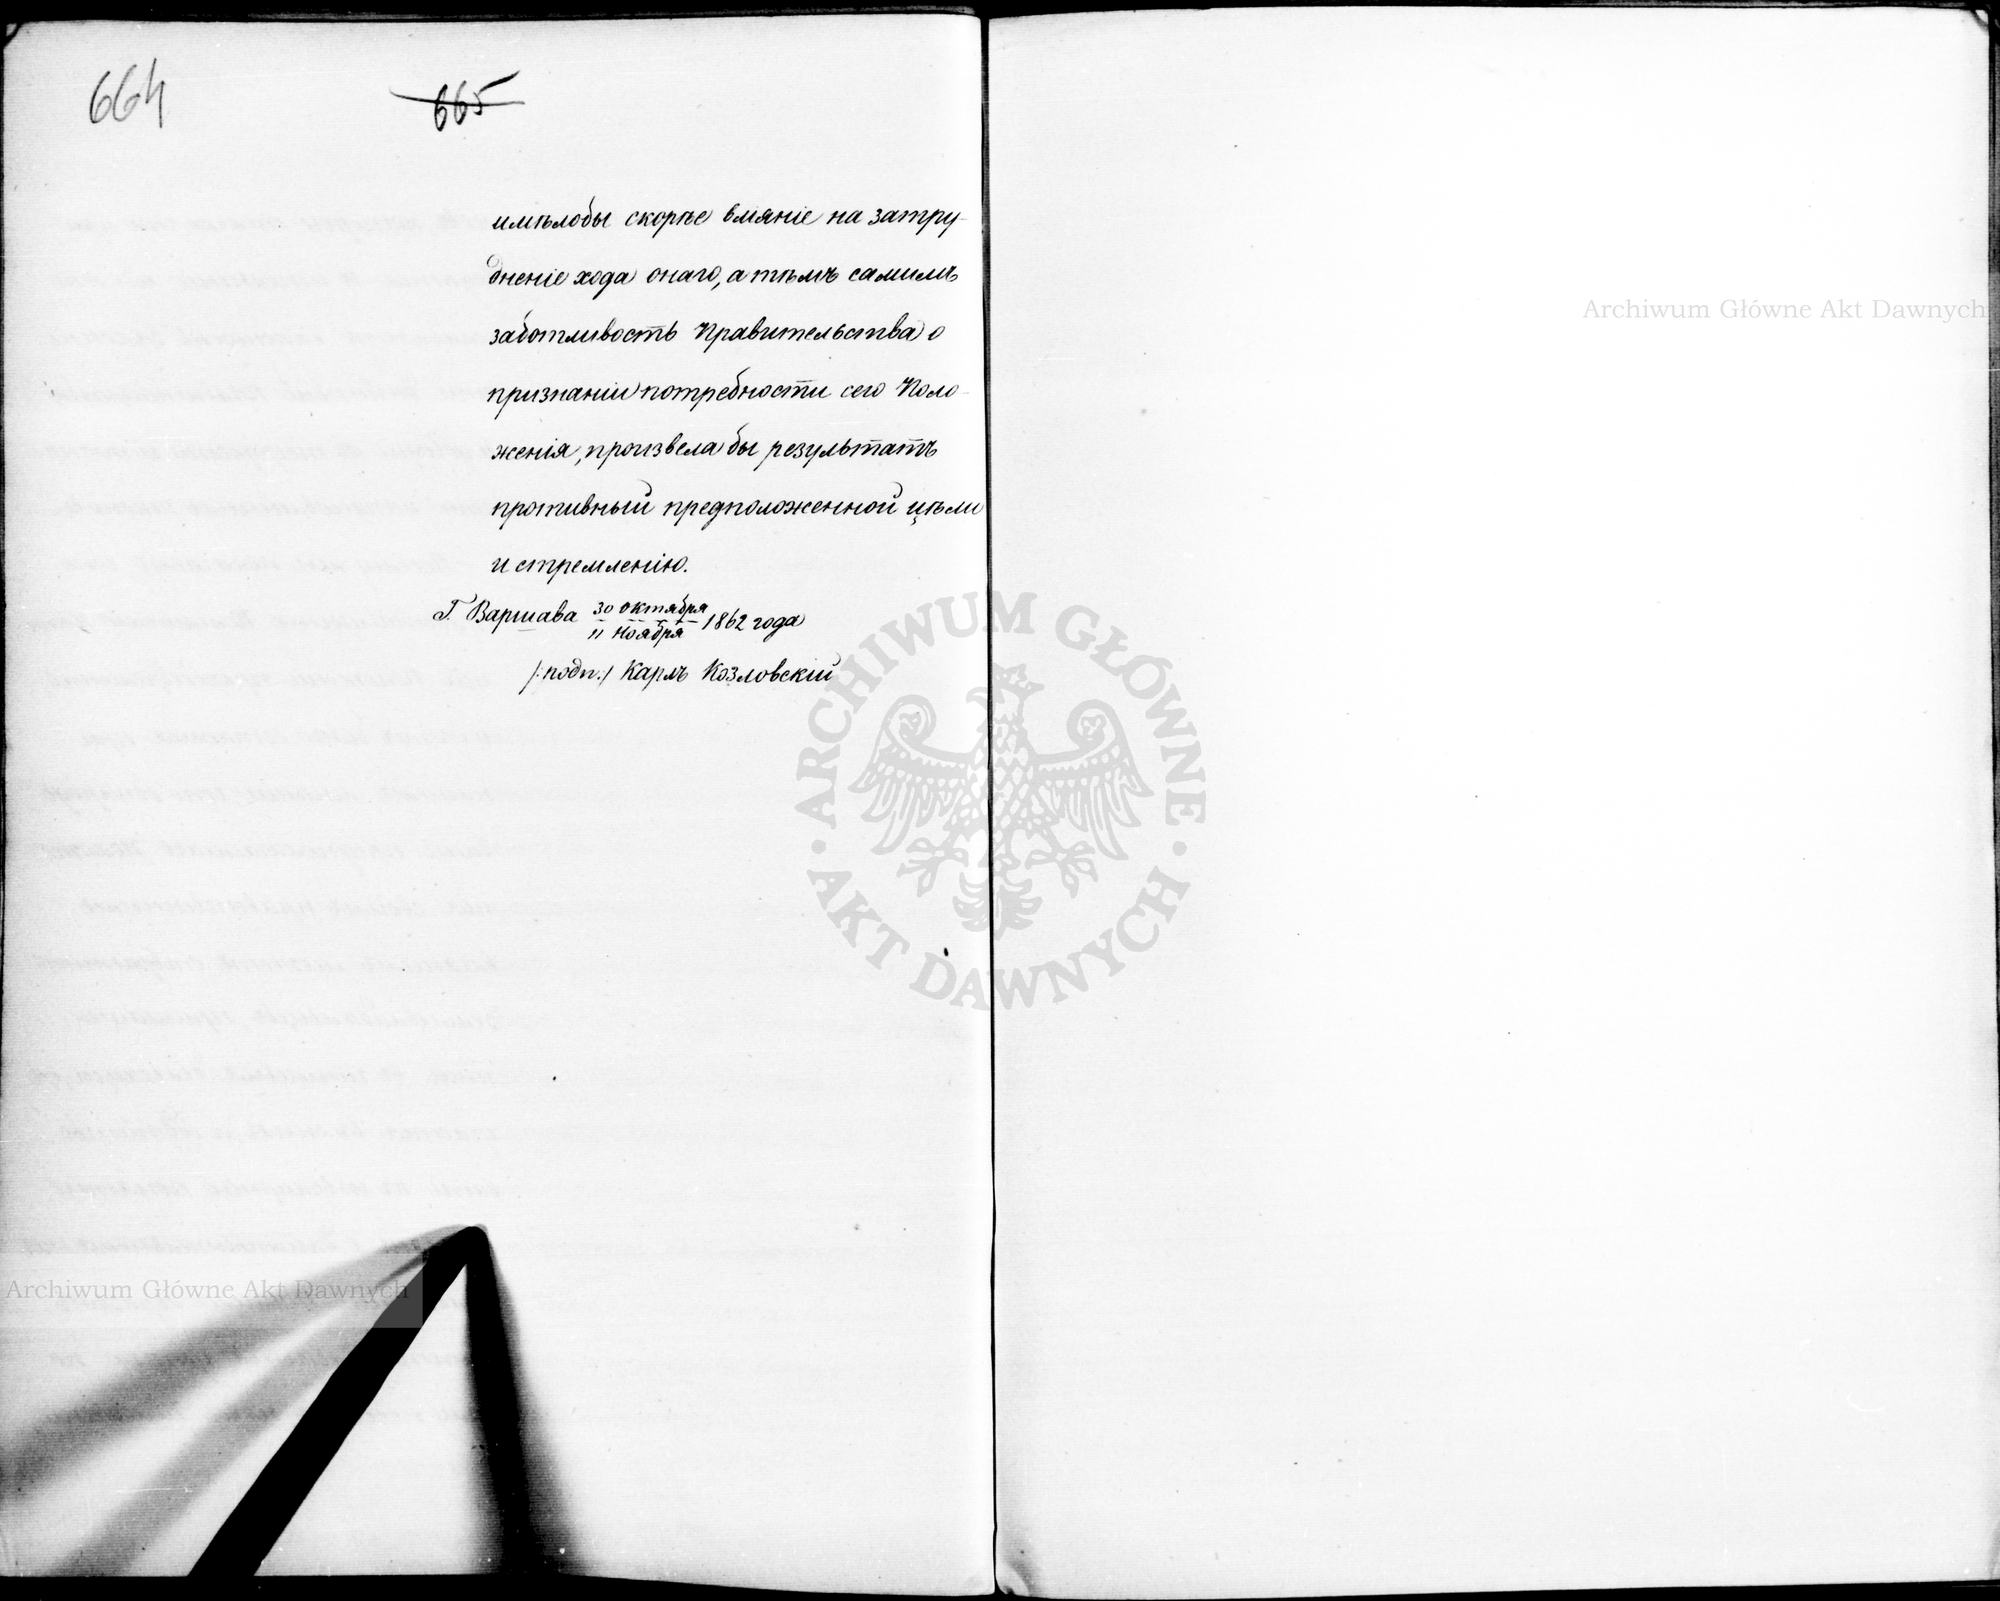 664
665
имѣлобы скорѣе вліяніе на затру-
дненіе хода онаго, а тѣмъ самимъ
заботливость Правительства о
признаніи потребности сего Поло-
женія, произвела бы результатъ
противный предположенной цѣли
и стремленію.
Г. Варшава 30 Октября / 11 Ноября 1862 года
/:подп:/ Карлъ Козловскій
Archiwum Główne Akt Dawnych
ARCHIWUM GŁÓWNE · AKT DAWNYCH ·
Archiwum Główne Akt Dawnych